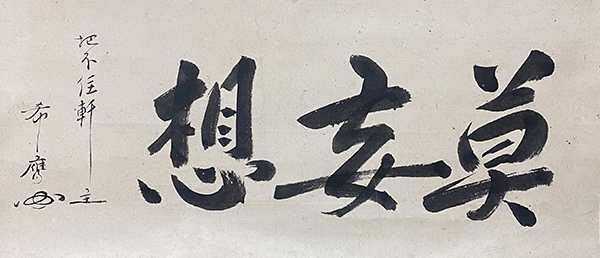 莫妄想
把不住軒主
希膺